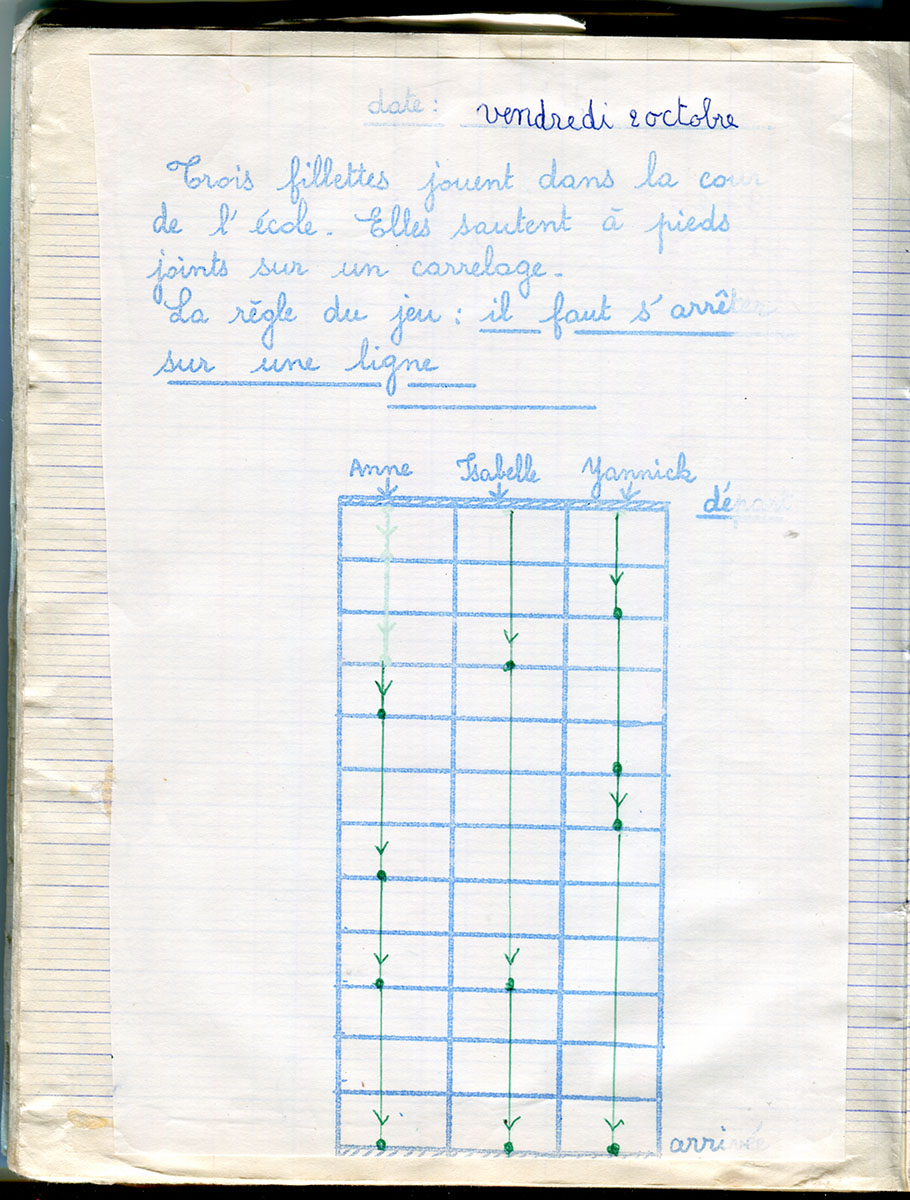 date : vendredi 2 octobre
Trois fillettes jouent dans la cour
de l'école. Elles sautent à pieds
joints sur un carrelage.
La règle du jeu : il faut s'arrêter
sur une ligne
Anne Isabelle Yannick
départ
arrivée